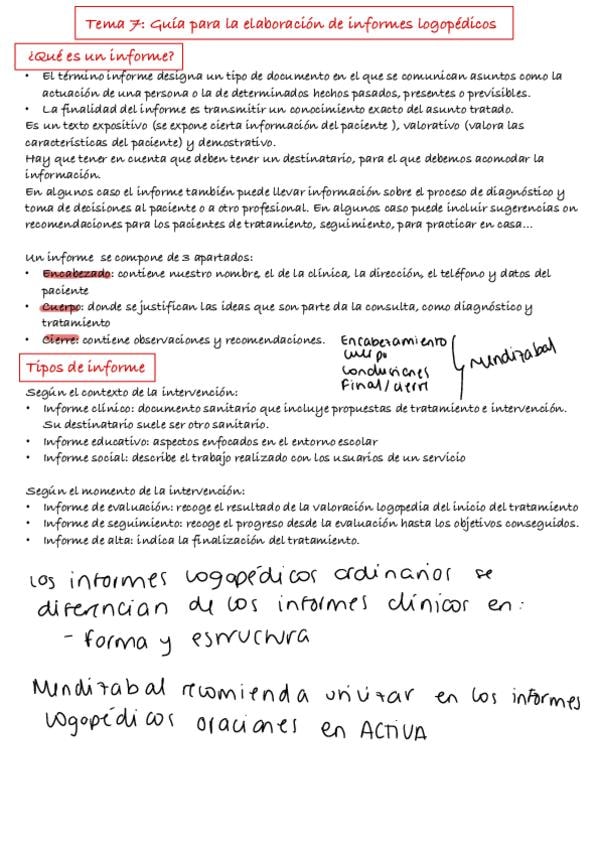 Tema 7: Guía para la elaboración de informes logopédicos
¿Qué es un informe?
• El término informe designa un tipo de documento en el que se comunican asuntos como la
actuación de una persona o la de determinados hechos pasados, presentes o previsibles.
• La finalidad del informe es transmitir un conocimiento exacto del asunto tratado.
Es un texto expositivo (se expone cierta información del paciente ), valorativo (valora las
características del paciente) y demostrativo.
Hay que tener en cuenta que deben tener un destinatario, para el que debemos acomodar la
información.
En algunos caso el informe también puede llevar información sobre el proceso de diagnóstico y
toma de decisiones al paciente o a otro profesional. En algunos caso puede incluir sugerencias on
recomendaciones para los pacientes de tratamiento, seguimiento, para practicar en casa...
Un informe se compone de 3 apartados:
• Encabezado: contiene nuestro nombre, el de la clínica, la dirección, el teléfono y datos del
paciente
• Cuerpo: donde se justifican las ideas que son parte da la consulta, como diagnóstico y
tratamiento
• Cierre: contiene observaciones y recomendaciones.
Encabezamiento
cuerpo
conclusiones
Final/cierre
Mendizabal
Tipos de informe
Según el contexto de la intervención:
• Informe clínico: documento sanitario que incluye propuestas de tratamiento e intervención.
Su destinatario suele ser otro sanitario.
• Informe educativo: aspectos enfocados en el entorno escolar
• Informe social: describe el trabajo realizado con los usuarios de un servicio
Según el momento de la intervención:
• Informe de evaluación: recoge el resultado de la valoración logopedia del inicio del tratamiento
• Informe de seguimiento: recoge el progreso desde la evaluación hasta los objetivos conseguidos.
• Informe de alta: indica la finalización del tratamiento.
Los informes logopédicos ordinarios se
diferencian de los informes clínicos en:
- forma y estructura
Mendizabal recomienda utilizar en los informes
logopédicos oraciones en ACTIVA